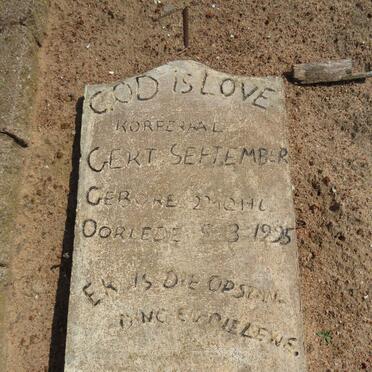 GOD iS LOVE
KORPERAAL
GERT SEPTEMBER
GEBORE
OORLEDE 5 3 1995
EK IS DIE OPSTAN
DING EN DIE LEWE.